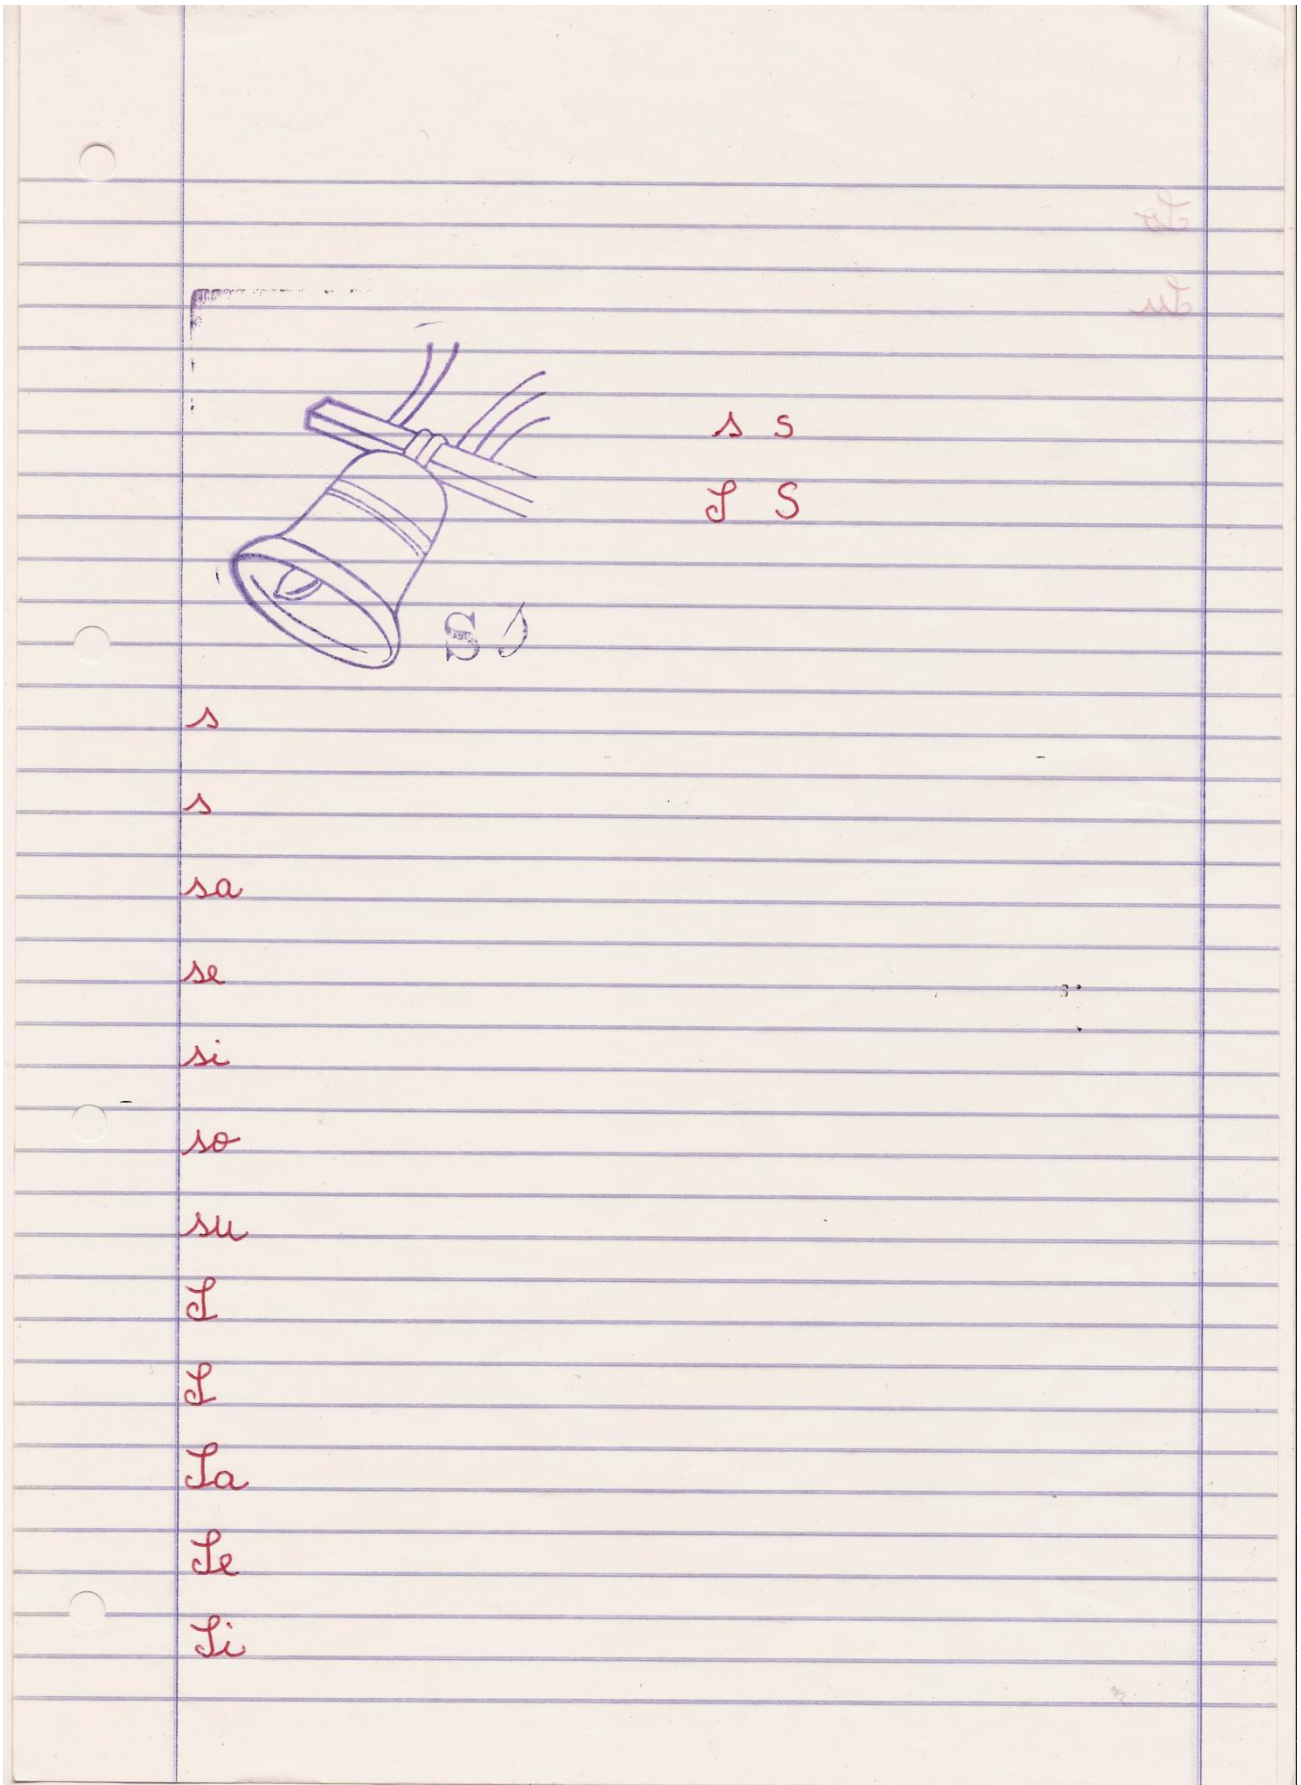 s s
S S
S S
s
s
sa
se
si
so
su
S
S
Sa
Se
Si